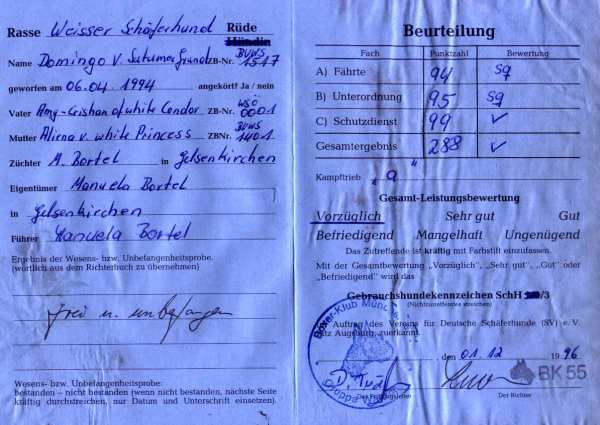 Rasse Weisser Schäferhund Rüde
Hündin
Name Domingo v. Sutumer Grund ZB-Nr. BUWS 1517
geworfen am 06.04.1994 angekört? Ja / nein
Vater Amy-Crishan of white Condor ZB-Nr. WSÖ 0001
Mutter Aliena v. white Princess ZBNr. BUWS 1401
Züchter M. Bortel in Gelsenkirchen
Eigentümer Manuela Bortel
in Gelsenkirchen
Führer Manuela Bortel
Ergebnis der Wesens- bzw. Unbefangenheitsprobe.
(wörtlich aus dem Richterbuch zu übernehmen)
frei u. unbefangen
Wesens- bzw. Unbefangenheitsprobe:
bestanden – nicht bestanden (wenn nicht bestanden, nächste Seite
kräftig durchstreichen, nur Datum und Unterschrift einsetzen).
Beurteilung
Fach Punktzahl Bewertung
A) Fährte 94 sg
B) Unterordnung 95 sg
C) Schutzdienst 99 v
Gesamtergebnis 288 v
Kampftrieb „a“
Gesamt-Leistungsbewertung
Vorzüglich Sehr gut Gut
Befriedigend Mangelhaft Ungenügend
Das Zutreffende ist kräftig mit Farbstift einzufassen.
Mit der Gesamtbewertung „Vorzüglich", „Sehr gut", „Gut" oder
„Befriedigend" wird das
Gebrauchshundekennzeichen SchH /3
(Nichtzutreffendes streichen)
Auftrag des Vereins für Deutsche Schäferhunde (SV) e. V.
Sitz Augsburg, zuerkannt.
, den 01.12 1996
Boxer-Klub
BK 55
Der Prüfungsleiter Der Richter